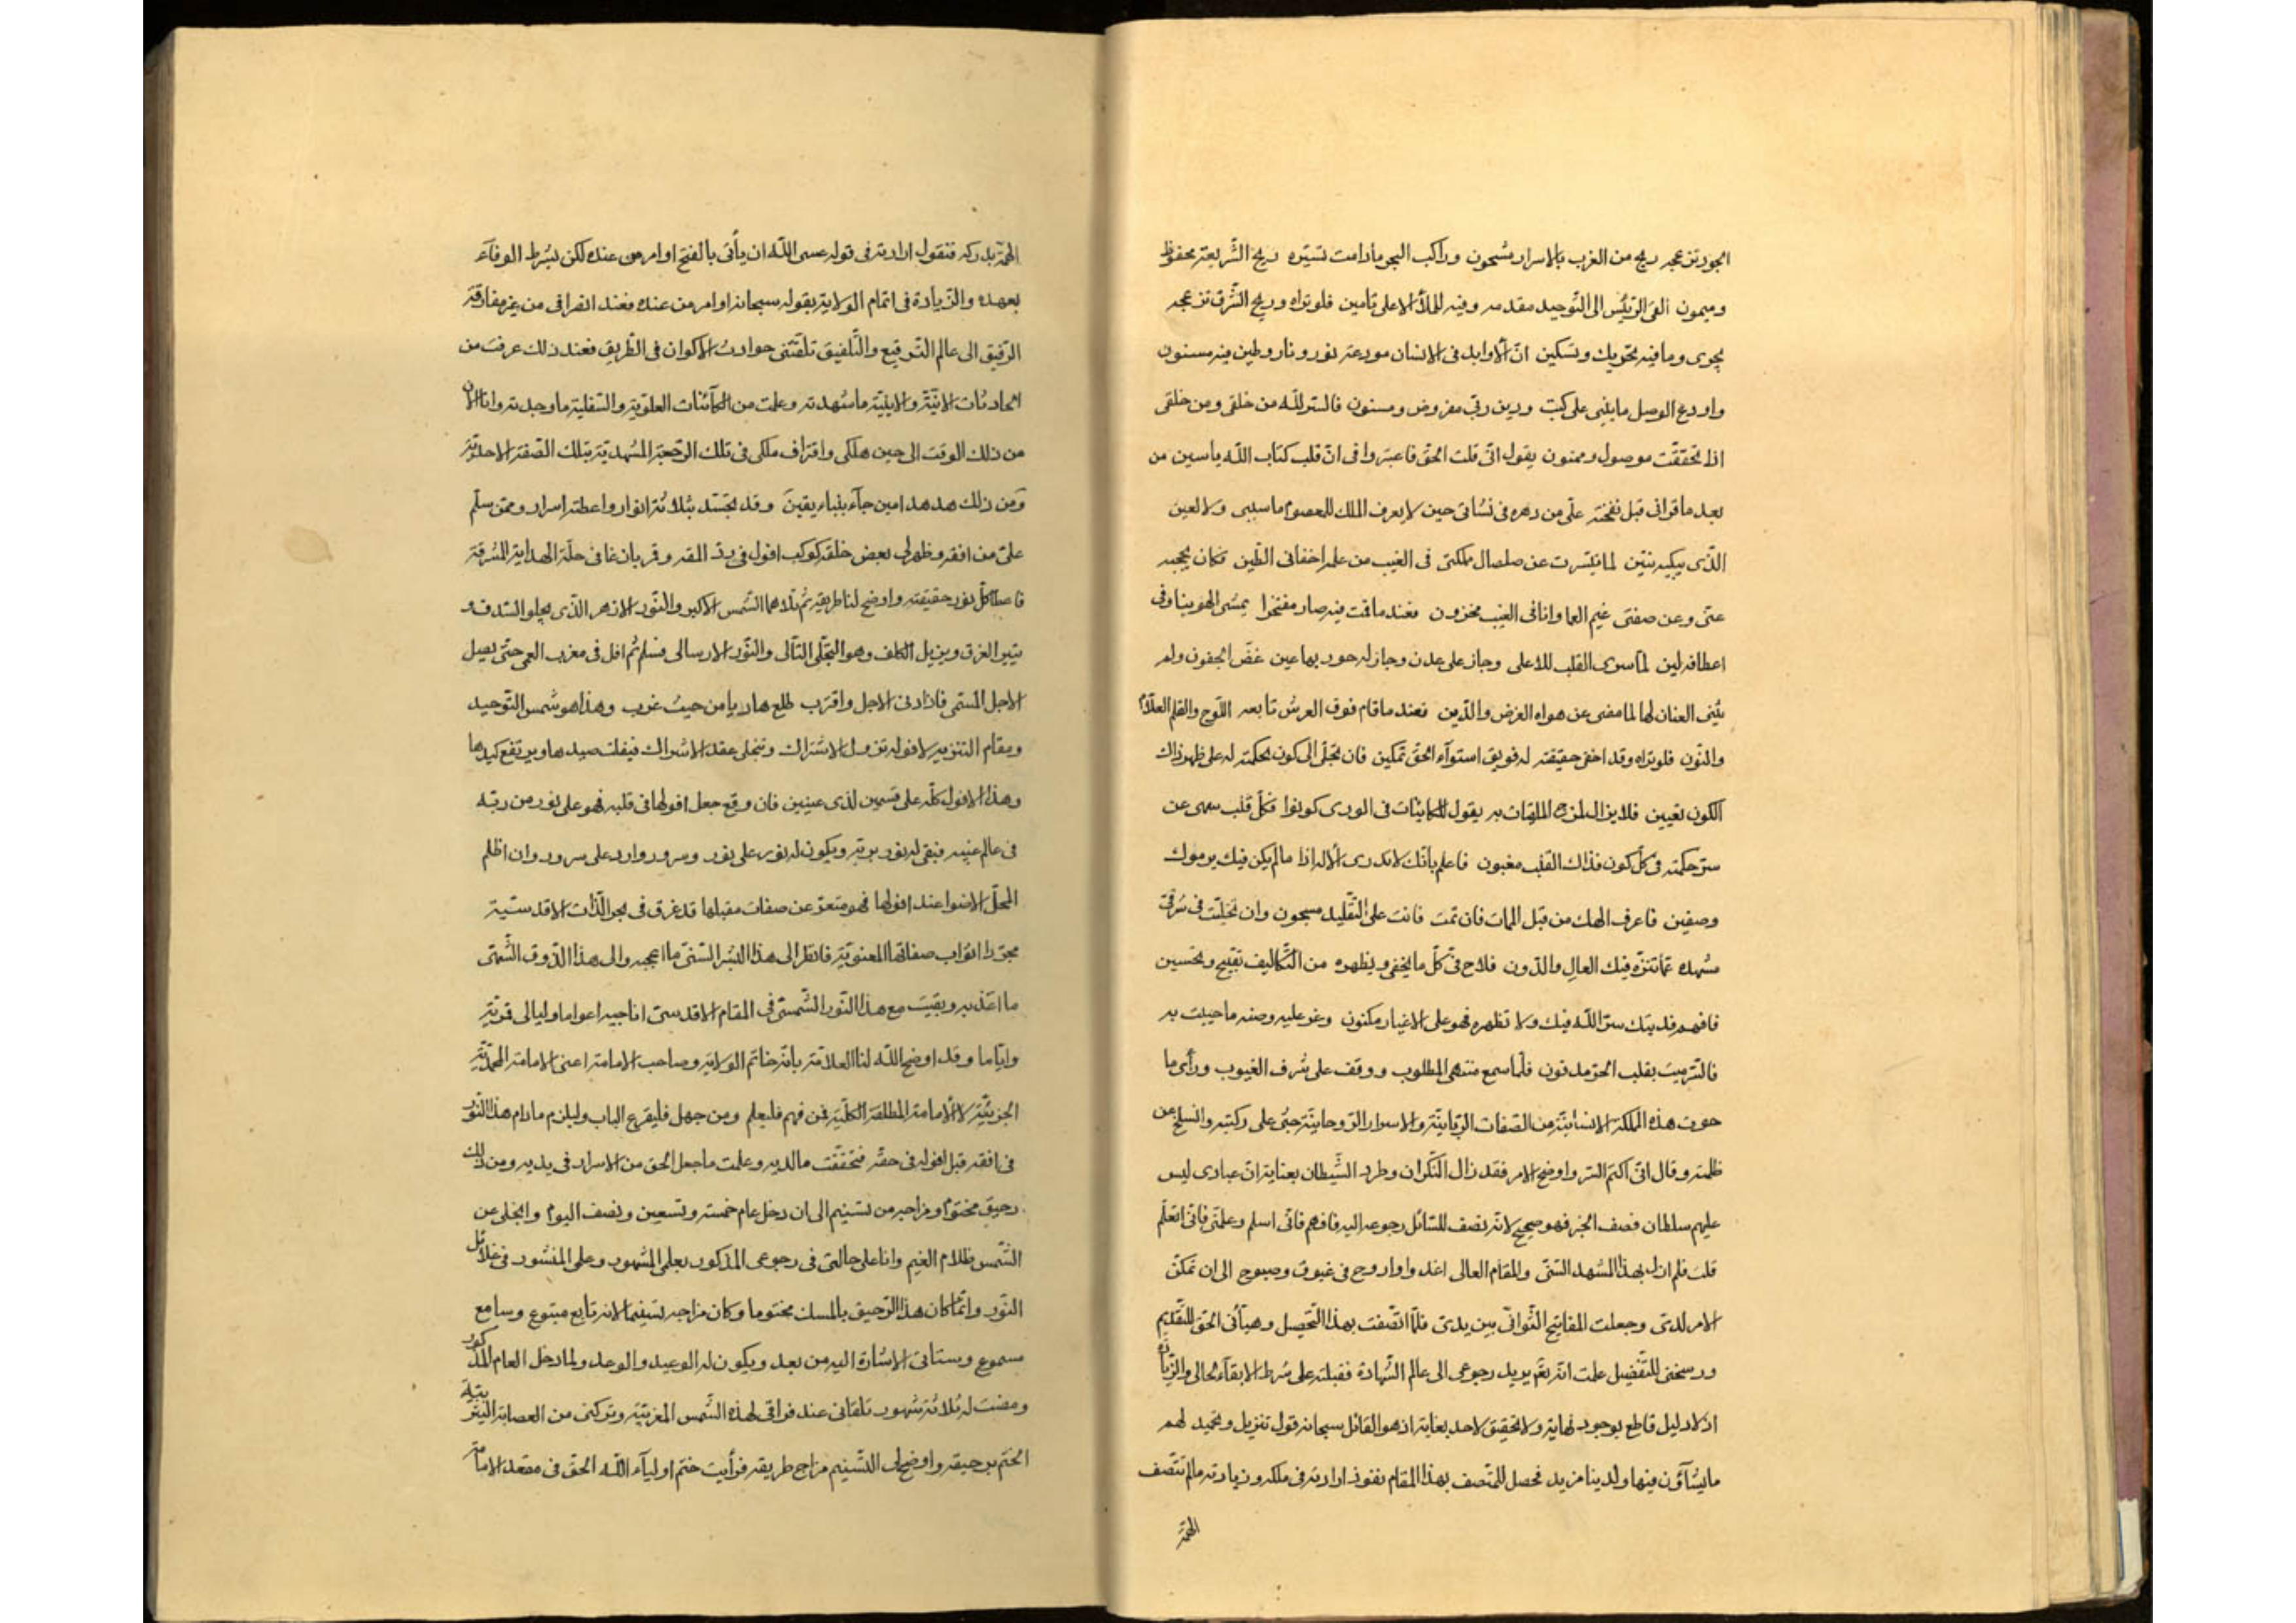 الجود تزعجه ريح من الغرب بالاسرار مشحون وراكب البحر مادامت تسيّره ريح الشّريعة محفوظ
وميمون الغى الرّئيس الى التّوحيد مقدمه وفيه للملأ الاعلى تأمين فلوتراه وريح الشّرق تزعجه
يجرى وما فيه تحريك وتسكين انّ الأوابد فى الانسان مودعة نور ونار وطين فيه مسنون
واودع الوصل مابينى على كبت ودين ربّ مفروض ومسنون فالسّر للّه من خلقى ومن خلقى
اذا تحققت موصول وممنون يقول انّى قلت الحقّ فاعتبروا فى انّ قلب كتاب اللّه ياسين من
بعد ما قرانى قبل نفخته علّى من دهره فى نشأتى حين لا يعرف الملك المعصوم ما سببى ولا لعين
الّذى يبكيه بنّين لما تسّترت عن صلصال مملكتى فى الغيب من علمه اخفانى الطّين فكان يحجبه
عنّى وعن صفتى غيم العما وانا فى الغيب مخزون فعند ما قمت فيه صار مفتخرا يمشى الهوينا وفى
اعطافه لين لمّا سرى القلب للاعلى وجاز على عدن وجاز له حور بها عين غضّ الجفون ولم
يثنى العنان لها لما مضى عن هواه الفرض والدّين فعند ما قام فوق العرش تابعه اللّوح والقلم العلّام
والنّون فلوتراه وقد اخفى حقيقته له فويق استوآء الحقّ تمكين فان تجلّى الى كون بحكمته له على ظهر ذاك
الكون تعيين فلا يزال لمزح الملقيات به يقول للكاينات فى الورى كونوا فكلّ قلب سهى عن
سرّ حكمته فى كلّ كون فذاك القلب مغبون فاعلم بأنّك لا تدرى الأله اذا مالم يكن فيك يرموك
وصفين فاعرف الهك من قبل الممات فان تمت فانت على التّقليد مسجون وان تجلّيت فى شرقىّ
مشهده عما تنزّه فيك العال والدّون فلاح فى كلّ ما يخفى ويظهره من التّكاليف تقبيح وتحسين
فافهم فديتك سرّ اللّه فيك ولا تظهره فهو على الاغيار مكنون وغر عليه وصنه ماحييت به
فالسّر ميت بقلب الحرّ مدفون فلمّا سمع منتهى المطلوب ووقف على شرف الغيوب ورأى ما
حوت هذه المملكة الانسانيّة من الصّفات الرّبّانيّة والاسرار الرّوحانيّة جثى على ركبتيه وانسلخ عن
ظلمته وقال انّى اكتم السّر واوضح الامر فقد زال النّكران وطرد الشّيطان بعناية انّ عبادى ليس
عليهم سلطان فصف الخبر فهو صحيح لانّه نصف للسّائل رجوعه اليه فافهم فانّى اسلم وعلّمنى فانّى اتعلّم
قلت فلم ازل بهذا المشهد السّنىّ والمقام العالى اغدوا واروح فى غبوق وصبوح الى ان تمكّن
الامر لدىّ وجعلت المفاتيح الثّوانى بين يدىّ فلمّا اتّصفت بهذا التّحصيل وهيأنى الحق للتقديم
ورسخنى للتّفضيل علمت انّه نعّم يريد رجوعى الى عالم الشّهادة فقبلته على شرط الابقآء لحالى والزّيادة
اذ لا دليل قاطع بوجود نهاية ولا تحقيق لاحد بغاية اذ هو القائل سبحانه قول تنزيل وتمجيد لهم
ما يشآؤن فيها ولدينا مزيد فحصل للمتّصف بهذا المقام نفوذ ارادته فى ملكه وزيادته مالم تتّصف
الهمّة
الهمّة بدركه فنقول ارادته فى قوله عسى اللّه ان يأتى بالفتح اوامر من عنده لكن بشرط الوفآء
بعهده والزّيادة فى اتمام الولاية بقوله سبحانه اوامر من عنده فعند انفراقى من غير مفارقة
الرّفيق الى عالم التّرقيع والتّلفيق تلقّتنى حوادث الاكوان فى الطّريق فعند ذلك عرفت من
الحادثات الانيّة والاينيّة ما شهدته وعلمت من الكآئنات العلويّة والسّفليّة ما وجدته وانا الآن
من ذلك الوقت الى حين هلكى وافتراق ملكى فى تلك الرّجعة المشهديّة بتلك الصّفة الاحديّة
ومن ذلك هدهد امين جآء بنباء يقين وقد تجسّد بثلاثة انوار واعطته اسرار وممّن سلّم
علىّ من افقه وظهر لى بعض خلقه كوكب افول فى ردّ المقه وقر بان غا فى حلّة الهداية المشرقة
فاعطا كلّ نور حقيقته واوضح لنا طريقته ثمّ تلاهما الشّمس الاكبر والنّور الازهر الّذى يجلوا السّدف و
ينير الغرق ويزيل الكلف وهو التّجلّى التّالى والنّور الارسالى فسلم ثمّ افل فى مغرب العمى حتّى يصل
الاجل المسمّى فاذا دنى الاجل واقترب طلع هاربا من حيث غرب وهذا هو شمس التّوحيد
ومقام التنزيه لافوله تزول الاشتراك وتنحلى عقد الاشراك فيفلت صيدها ويرتفع كيدها
وهذا الافول كلّه على قسمين لذى عينين فان وقع جعل افولها فى قلبه فهو على نور من ربّه
فى عالم غيبه فبقى له نور بربّه ويكون له نور على نور وسرور وارد على سرور وان اظلم
المحلّ الاضوا عند افولها فهو متعرّ عن صفات مقبلها قد غرق فى بحر الذّات الاقدسيّة
مجرّدا اثواب صفاتها المعنويّة فانظر الى هذا السّر السّنىّ ما اعجبه والى هذا الذّوق الشّهى
ما اعذبه وبقيت مع هذا النّور الشّمسىّ فى المقام الاقدسىّ اناجيه اعواما وليالى قمريّة
وايّاما وقد اوضح اللّه لنا العلامة بانّه خاتم الولاية وصاحب الامامة اعنى الامامة المحمّديّة
الجزئيّة لا الامامة المطلقة الكلّيّة فمن فهم فليعلم ومن جهل فليقرع الباب وليلزم مادام هذا النّور
فى افقه قبل افوله فى حقّه فتحقّقت مالديه وعلمت ماجعل الحق من الاسرار فى يديه ومن ذلك
رحيق مختوم ومزاجه من تسنيم الى ان دخل عام خمسة وتسعين ونصف اليوم وانجلى عن
الشّمس ظلام الغيم وانا على حالتى فى رجوعى المذكور بعلمى المشهور وعلى المنشور فى غلائل
النّور وانّما كان هذا الرّحيق بالمسك مختوما وكان مزاجه تسنيما لانه تابع متبوع وسامع
مسموع وستأتى الاشارة اليه من بعد ويكون له الوعيد والوعد ولما دخل العام المذكور
ومضت له ثلاثة شهور تلقانى عند فراقى لهذه الشّمس المغربيّة وتركتى من العصابة اليثربيّة
الختم برحيقه واوضح لى التّسنيم مزاج طريقه فرأيت ختم اوليآء اللّه الحقّ فى مقعد الامامة